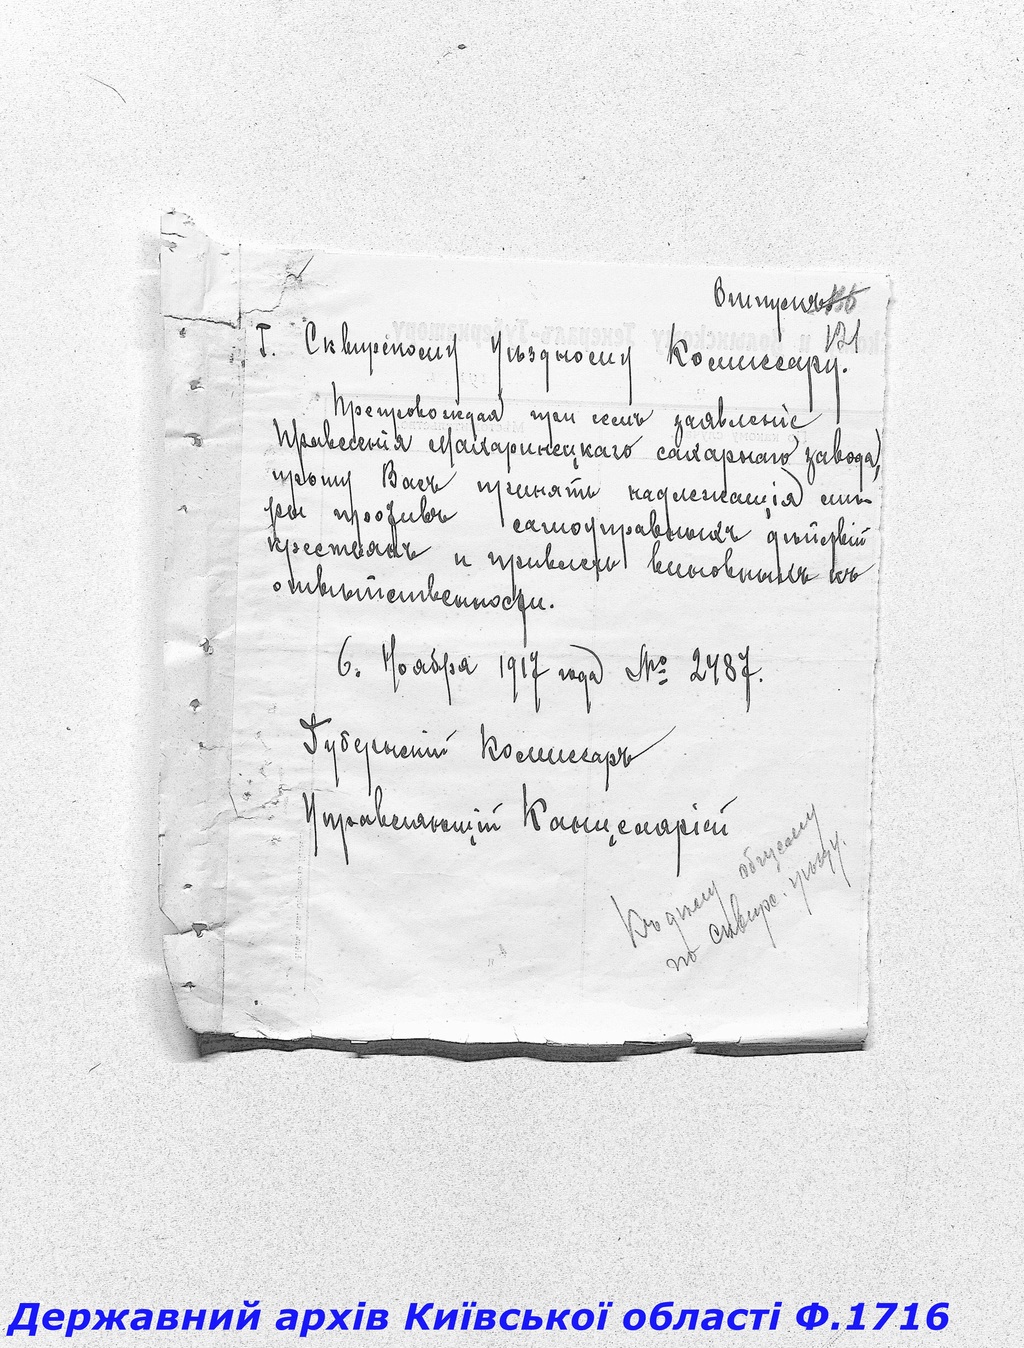 Отпускъ
121
Г. Сквирскому Уѣздному Комиссару.
Препровождая при семъ заявленіе
Правленія Махаринецкаго сахарнаго завода,
прошу Васъ принять надлежащія мѣ-
ры противъ самоуправныхъ дѣйствій
крестьянъ и привлечь виновныхъ къ
отвѣтственности.
6. Ноября 1917 года № 2487.
Губернскій Комиссаръ
Управляющій Канцеляріей
Къ дѣлу общему
по сквирс. уѣзду.
Державний архів Київської області Ф.1716